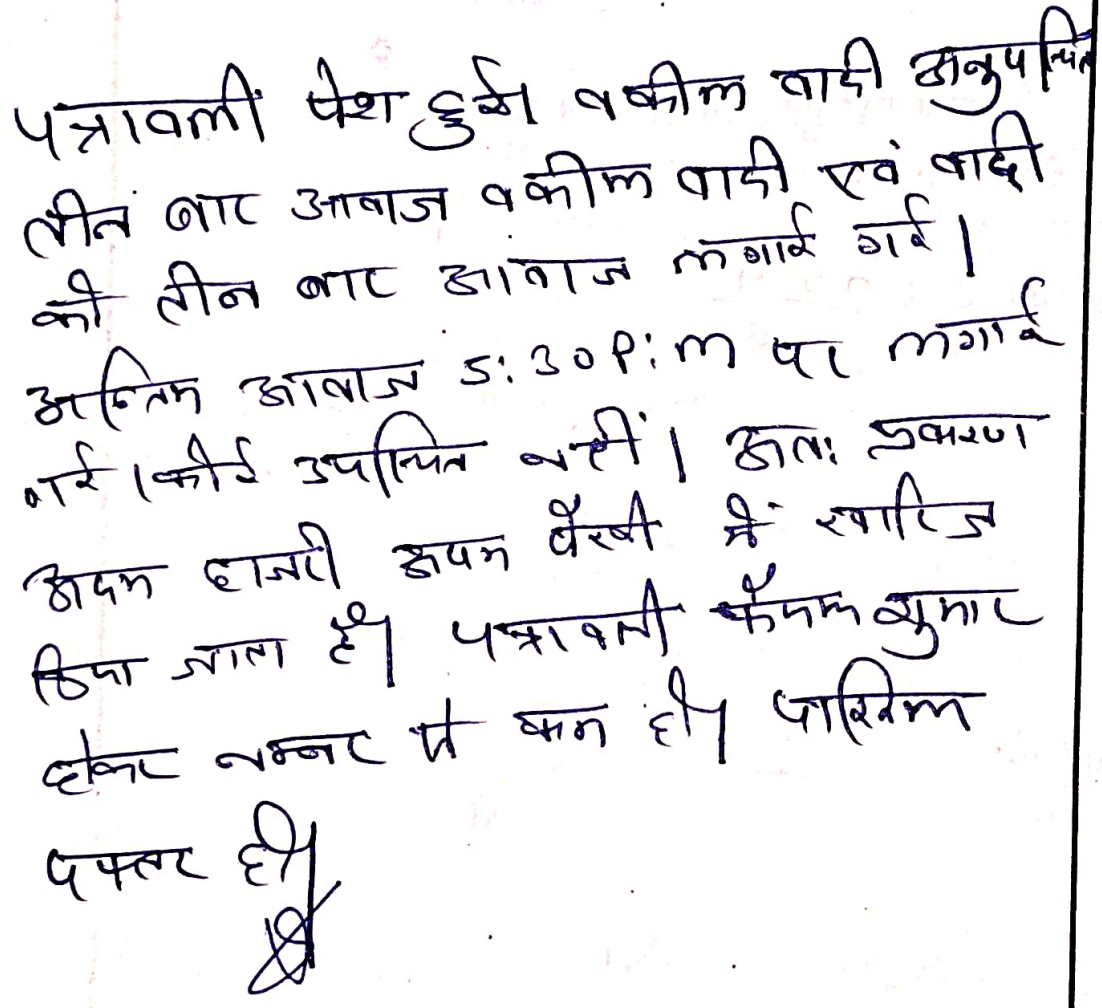 पत्रावली पेश हुई। वकील वादी अनुपस्थित
तीन बार आवाज वकील वादी एवं वादी
को तीन बार आवाज लगाई गई।
अन्तिम आवाज 5:30 P:m पर लगाई
गई। कोई उपस्थित नहीं। अतः प्रकरण
अदम हाजरी अदम पैरवी में खारिज
किया जाता है। पत्रावली फैसल शुमार
होकर नम्बर से कम हो। दाखिल
दफ्तर हो।